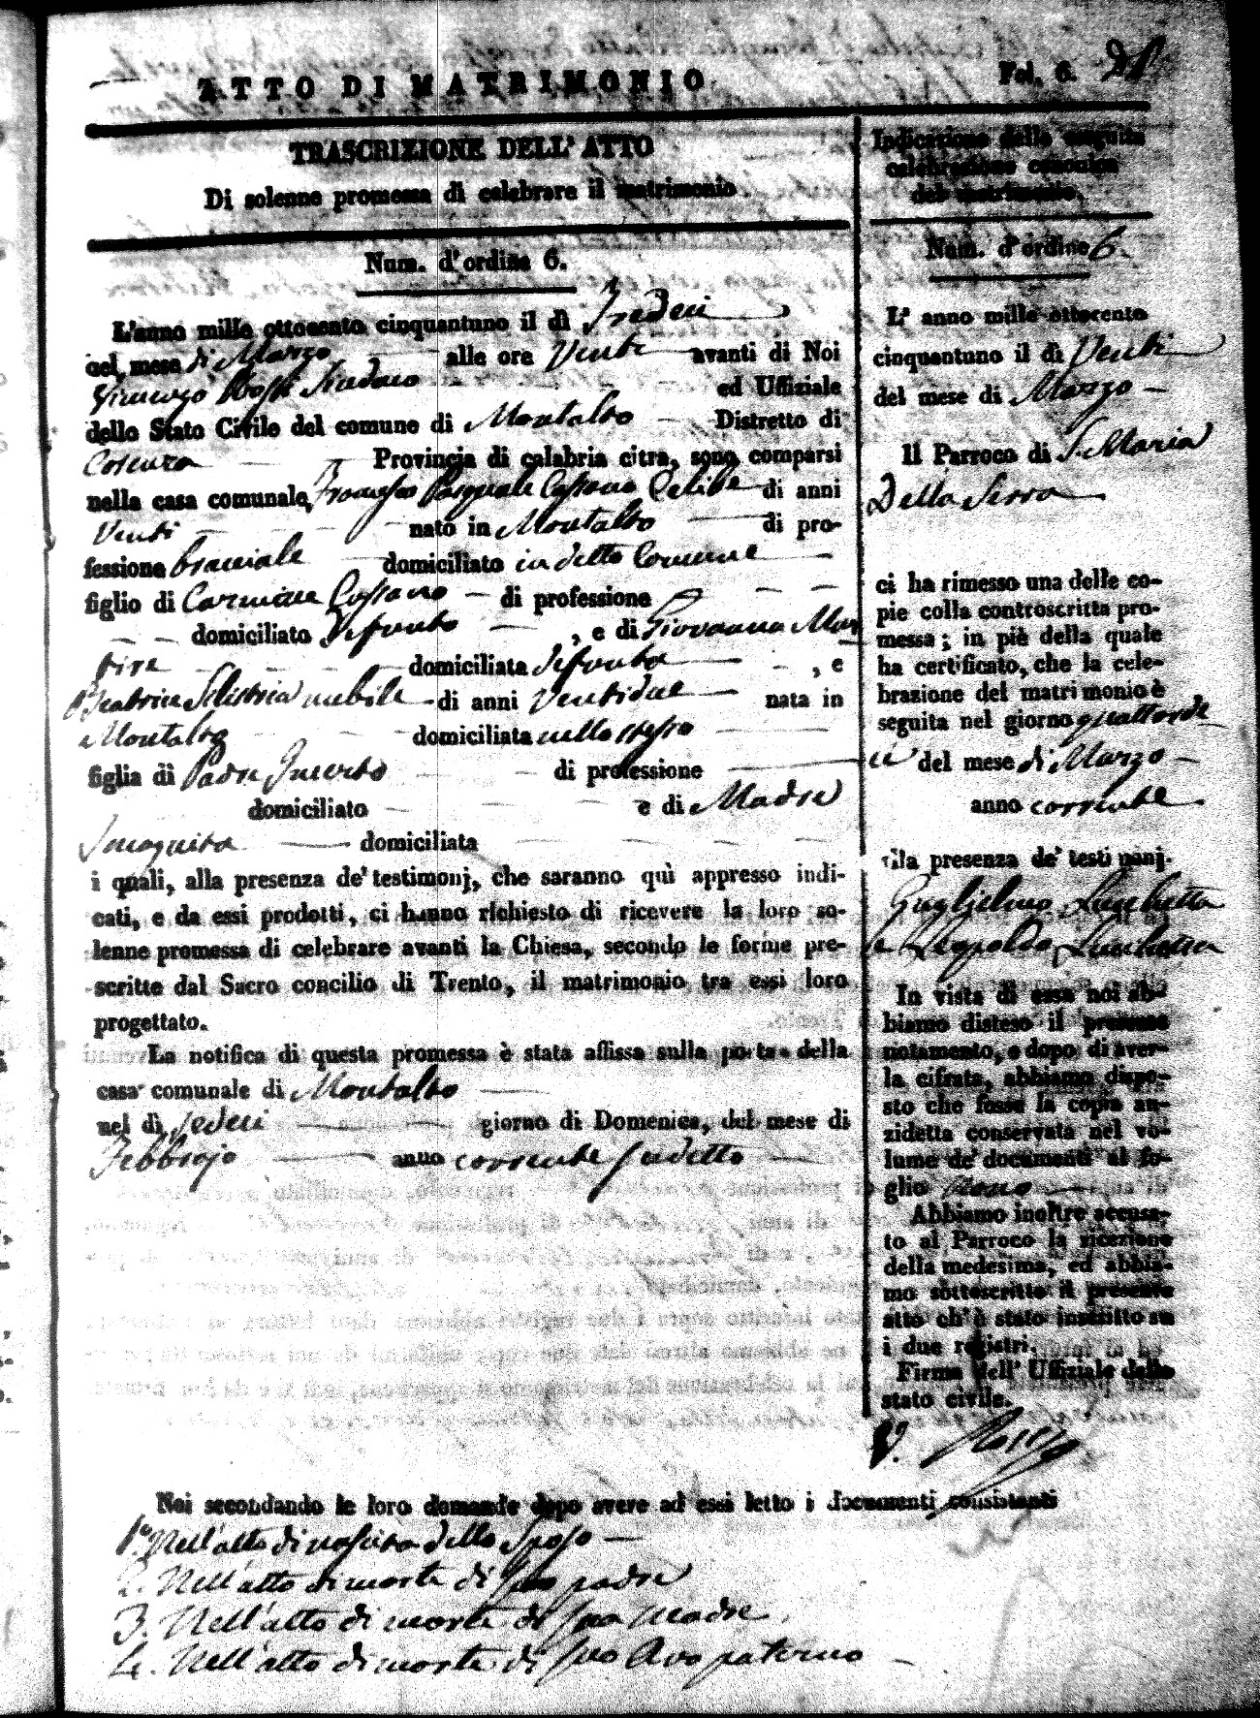 ATTO DI MATRIMONIO
Fol. 6.
TRASCRIZIONE DELL' ATTO
Di solenne promessa di celebrare il matrimonio
Num. d'ordine 6.
L'anno mille ottocento cinquantuno il dì Tredeci
nel mese di Marzo alle ore Venti avanti di Noi
Sindaco ed Uffiziale
dello Stato Civile del comune di Montalto Distretto di
Cosenza Provincia di calabria citra, sono comparsi
nella casa comunale Francesco Pasquale Cassano Celibe di anni
Venti nato in Montalto di pro-
fessione bracciale domiciliato in detto Comune
figlio di Carmine Cassano di professione
domiciliato Defonto , e di Giovanna Mar
tire domiciliata defonta , e
Beatrice Silistria nubile di anni Ventidue nata in
Montalto domiciliata nello stesso
figlia di Padre Incerto di professione
domiciliato e di Madre
Incognita domiciliata
i quali, alla presenza de' testimonj, che saranno quì appresso indi-
cati, e da essi prodotti, ci hanno richiesto di ricevere la loro so-
lenne promessa di celebrare avanti la Chiesa, secondo le forme pre-
scritte dal Sacro concilio di Trento, il matrimonio tra essi loro
progettato.
La notifica di questa promessa è stata affissa sulla porta della
casa comunale di Montalto
nel dì sedeci giorno di Domenica, del mese di
Febbrajo anno corrente sudetto
Indicazione della seguita
celebrazione canonica
del matrimonio.
Num. d'ordine 6.
L' anno mille ottocento
cinquantuno il dì Venti
del mese di Marzo
Il Parroco di S. Maria
Della Serra
ci ha rimesso una delle co-
pie colla controscritta pro-
messa; in piè della quale
ha certificato, che la cele-
brazione del matrimonio è
seguita nel giorno quattorde
ci del mese di Marzo
anno corrente
alla presenza de' testimonj.
Guglielmo Lucchetta
e Leopoldo Lucchetta
In vista di essa noi ab-
biamo disteso il presente
notamento, e dopo di aver-
la cifrata, abbiamo dispo-
sto che fosse la copia an-
zidetta conservata nel vo-
lume de' documenti al fo-
glio Nono
Abbiamo inoltre accusa-
to al Parroco la ricezione
della medesima, ed abbia-
mo sottoscritto il presente
atto ch'è stato inscritto su
i due registri.
Firma dell' Uffiziale dello
stato civile.
Noi secondando le loro domande dopo avere ad essi letto i documenti consistenti
1° Nell'atto di nascita dello Sposo
2. Nell'atto di morte di suo padre
3. Nell'atto di morte di sua Madre
4. Nell'atto di morte di suo Avo paterno